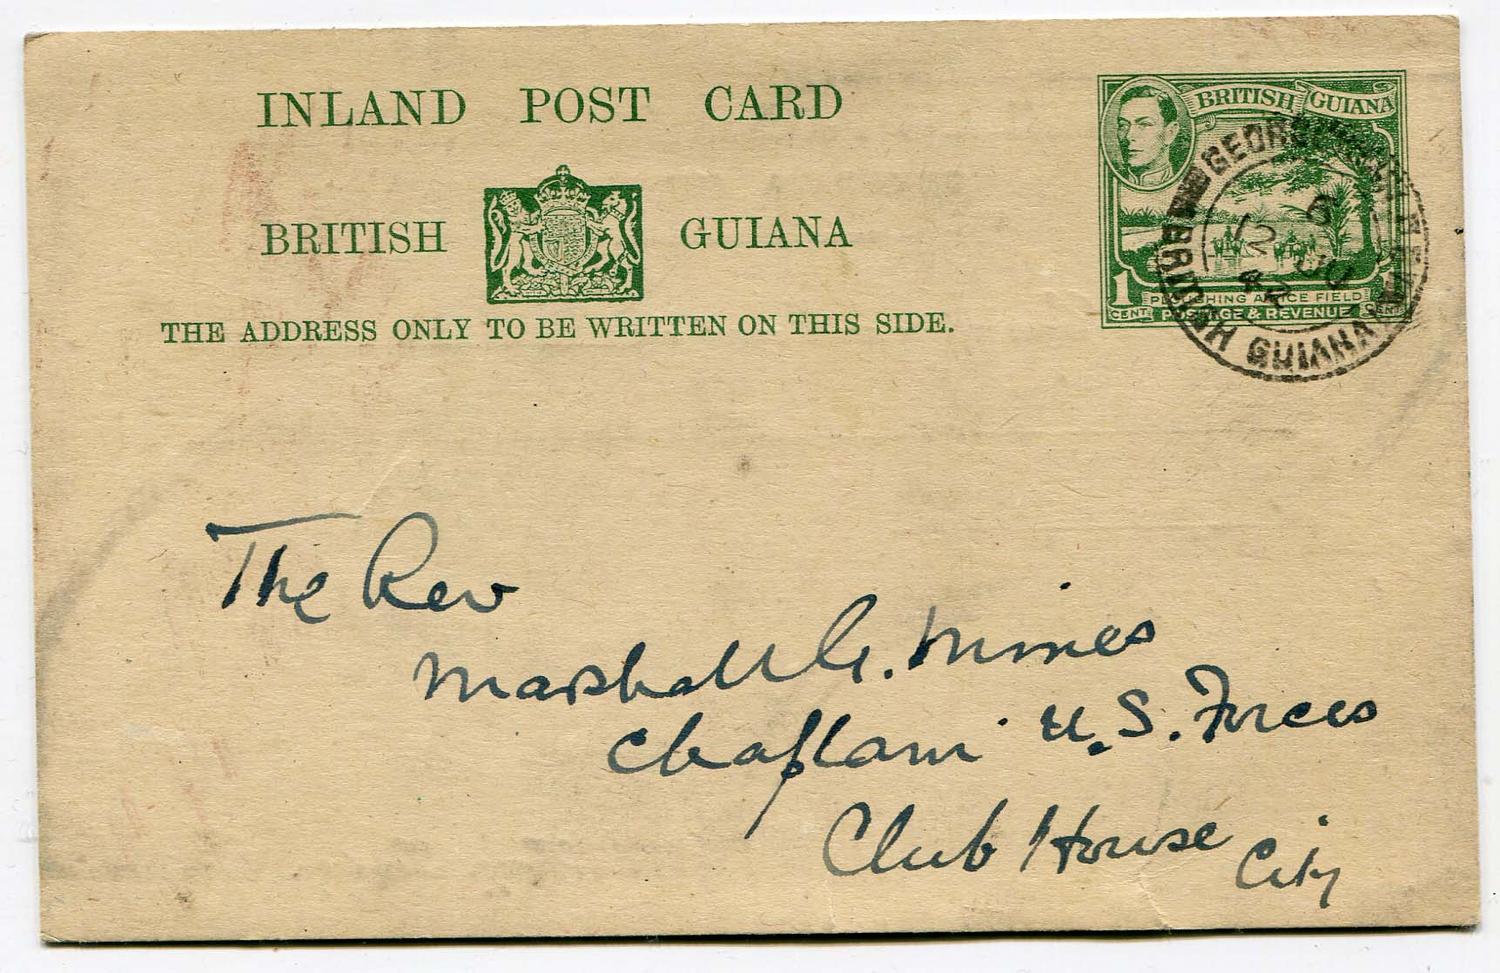 INLAND POST CARD
BRITISH GUIANA
THE ADDRESS ONLY TO BE WRITTEN ON THIS SIDE.
BRITISH GUIANA
1 PLOUGHING A RICE FIELD 1
CENT POSTAGE & REVENUE CENT
BRITISH GUIANA
The Rev
Marshall G. Mines
Chaplain U.S. Forces
Club House City